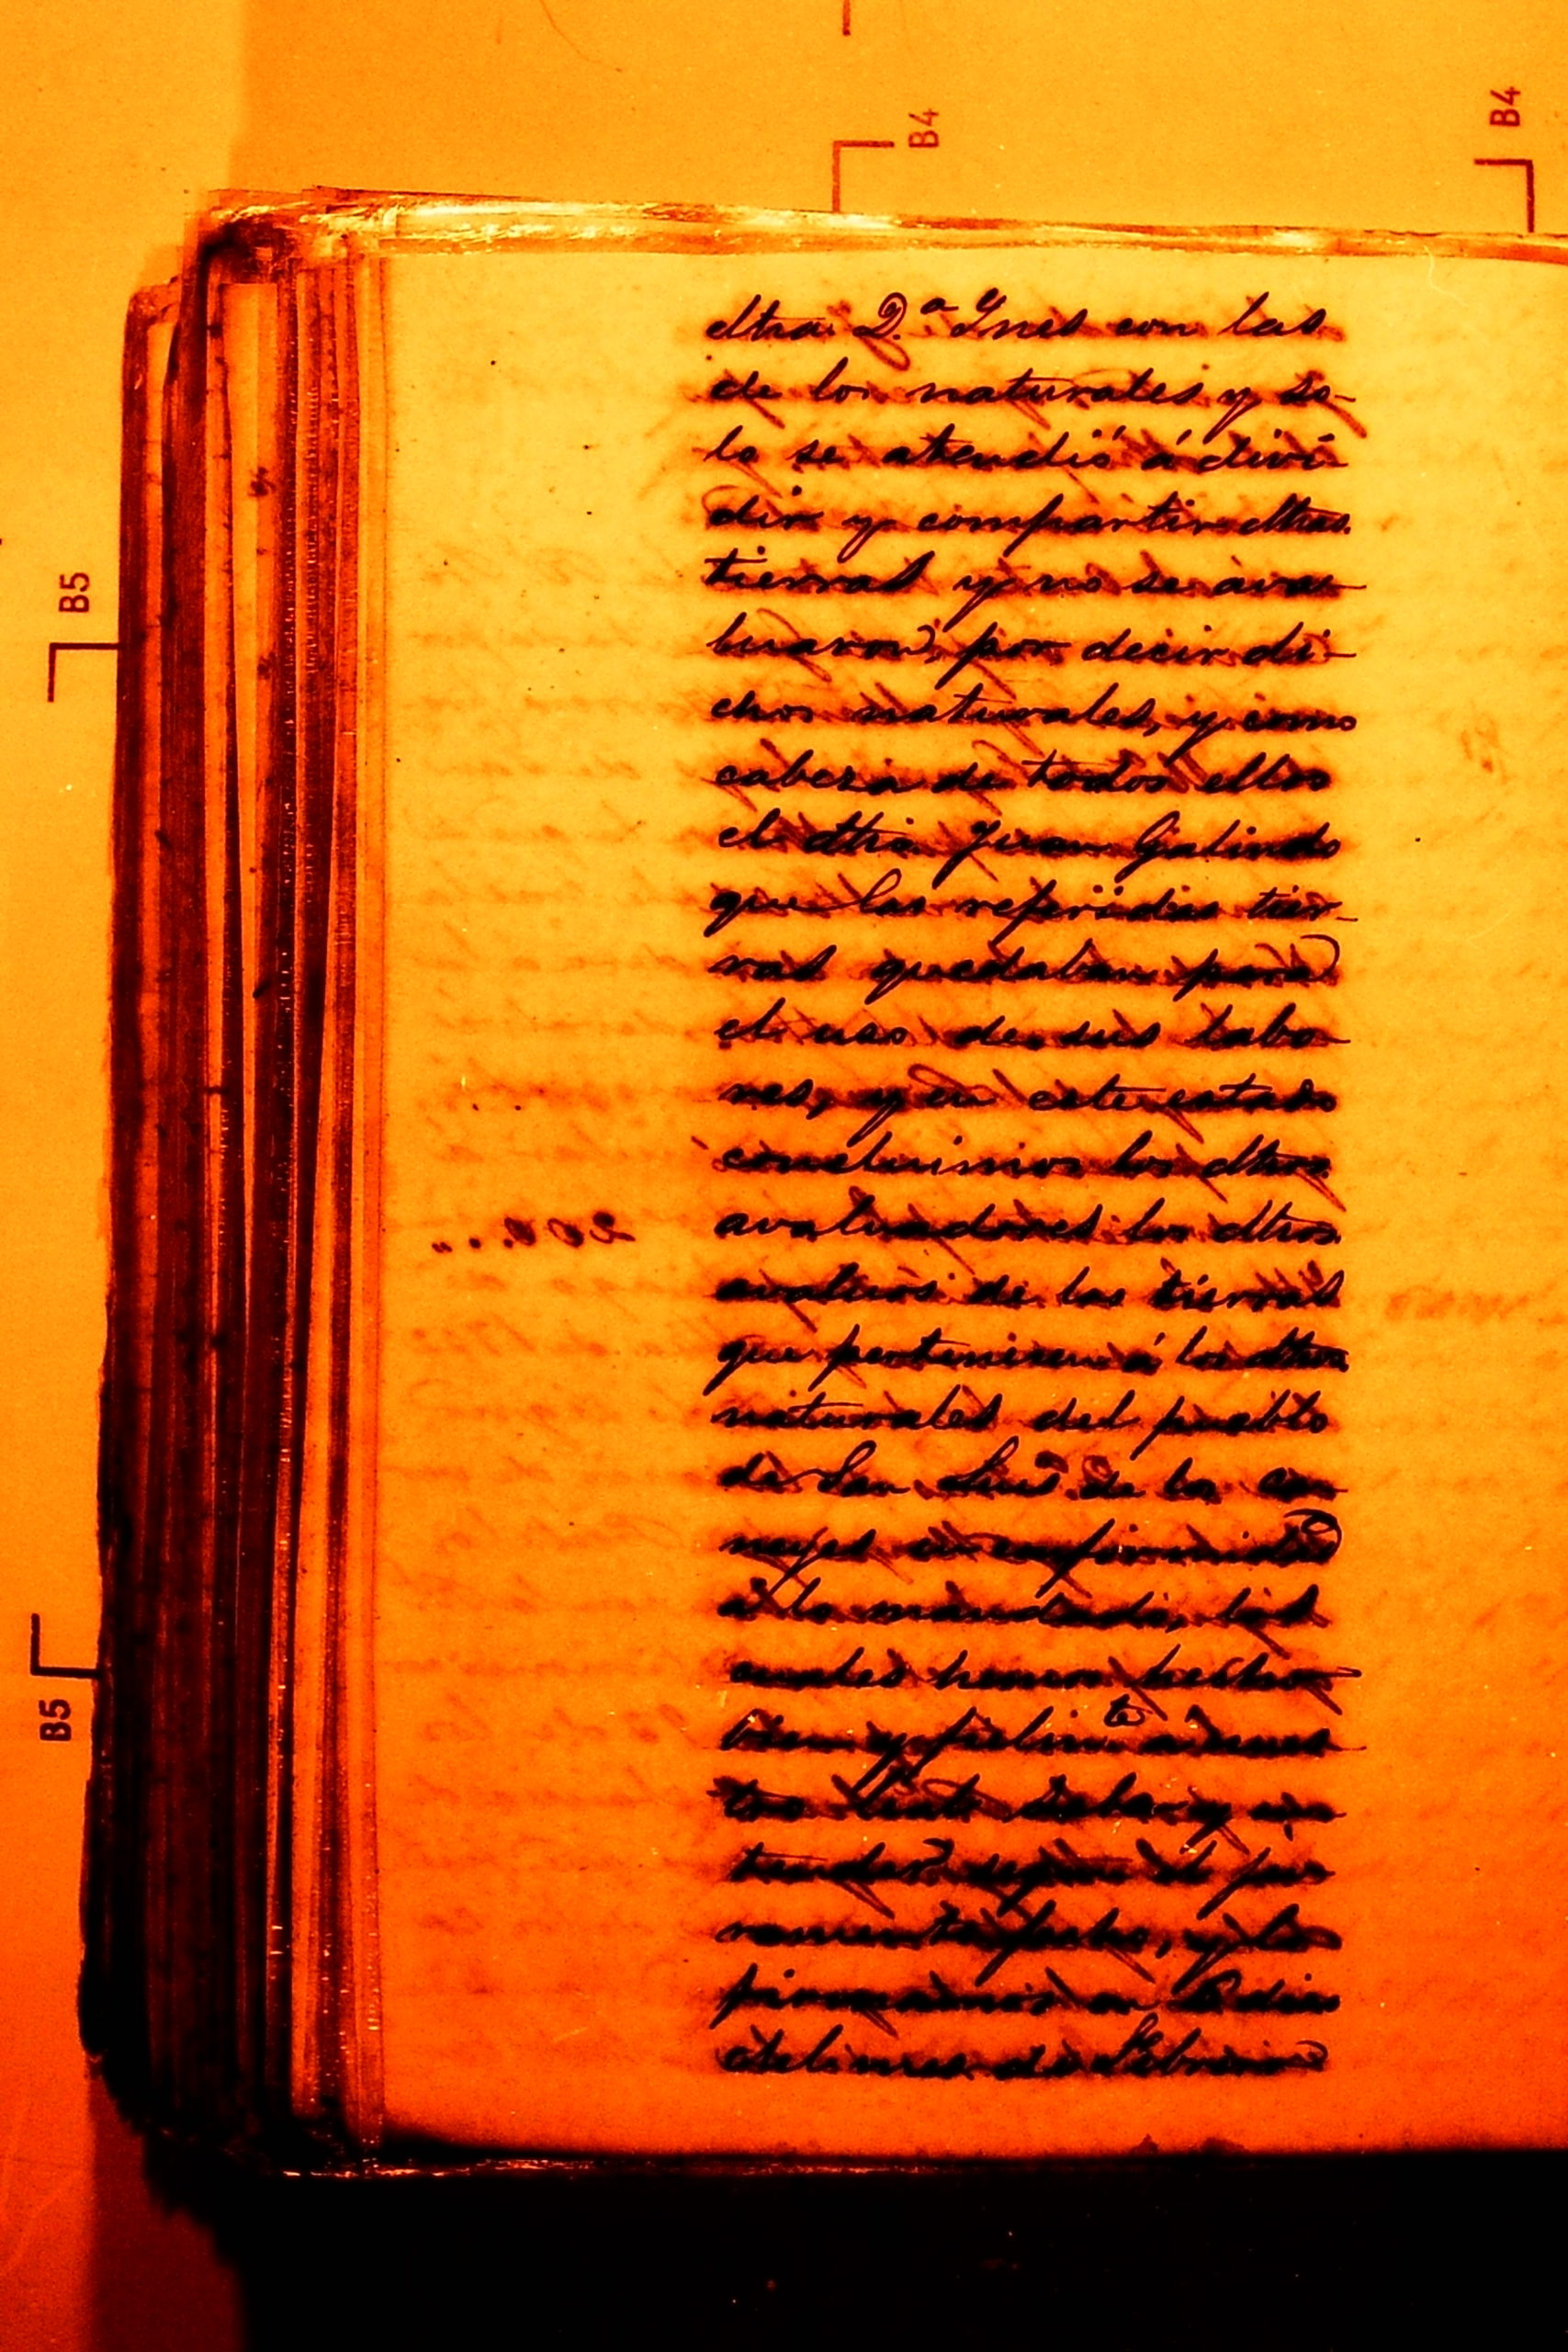 B4
B4
B5
B5
dha D.ª Ynes con las
de los naturales y so-
lo se atendió á divi-
dir y compartir dhas
tierras y no se ava-
luaron, por decir di-
chos naturales, y como
cabeza de todos ellos
el dho Juan Galindo
que las referidas tier-
ras quedaban para
el uso de sus labo-
res, y en este estado
concluimos los dhos
avaluadores los dhos
avaluos de las tierras
que pertenecen á los dhos
naturales del pueblo
de San Luis de los Co-
neyes en conformidad
á lo mandado, las
cuales hemos hecho
bien y fielm.te á nues-
tro leal saber y en-
tender segun el ju-
ramento fecho, y lo
firmamos en dia
del mes de Febrero